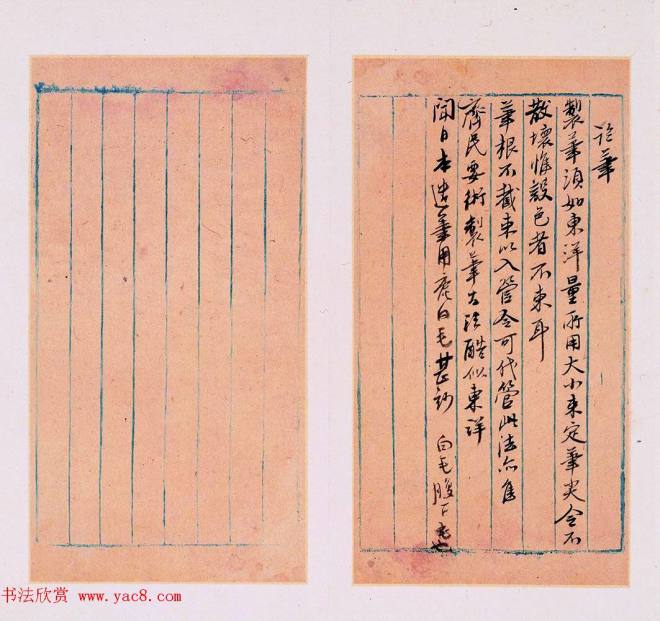 論筆
製筆須如東洋量所用大小束定筆尖令不
散壞惟設色者不束耳
筆根不截束以入管令可代管此法亦佳
齊民要術製筆古法酷似東洋
聞日本造筆用鹿白毛甚妙 白毛腹下毛也
书法欣赏 www.yac8.com